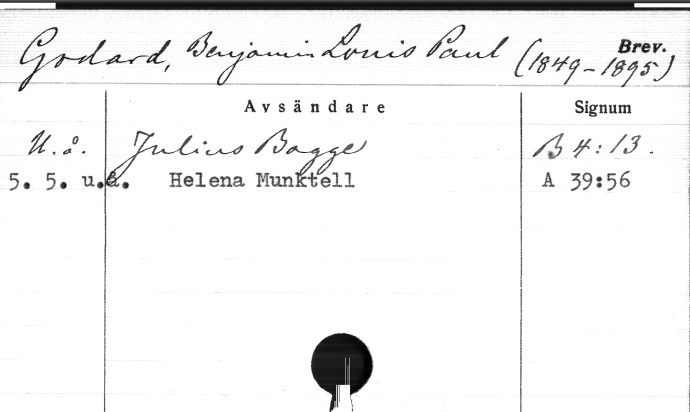 Godard, Benjamin Louis Paul (1849-1895) Brev.
Avsändare Signum
U. å. Julius Bagge B 4:13.
5. 5. u.å. Helena Munktell A 39:56